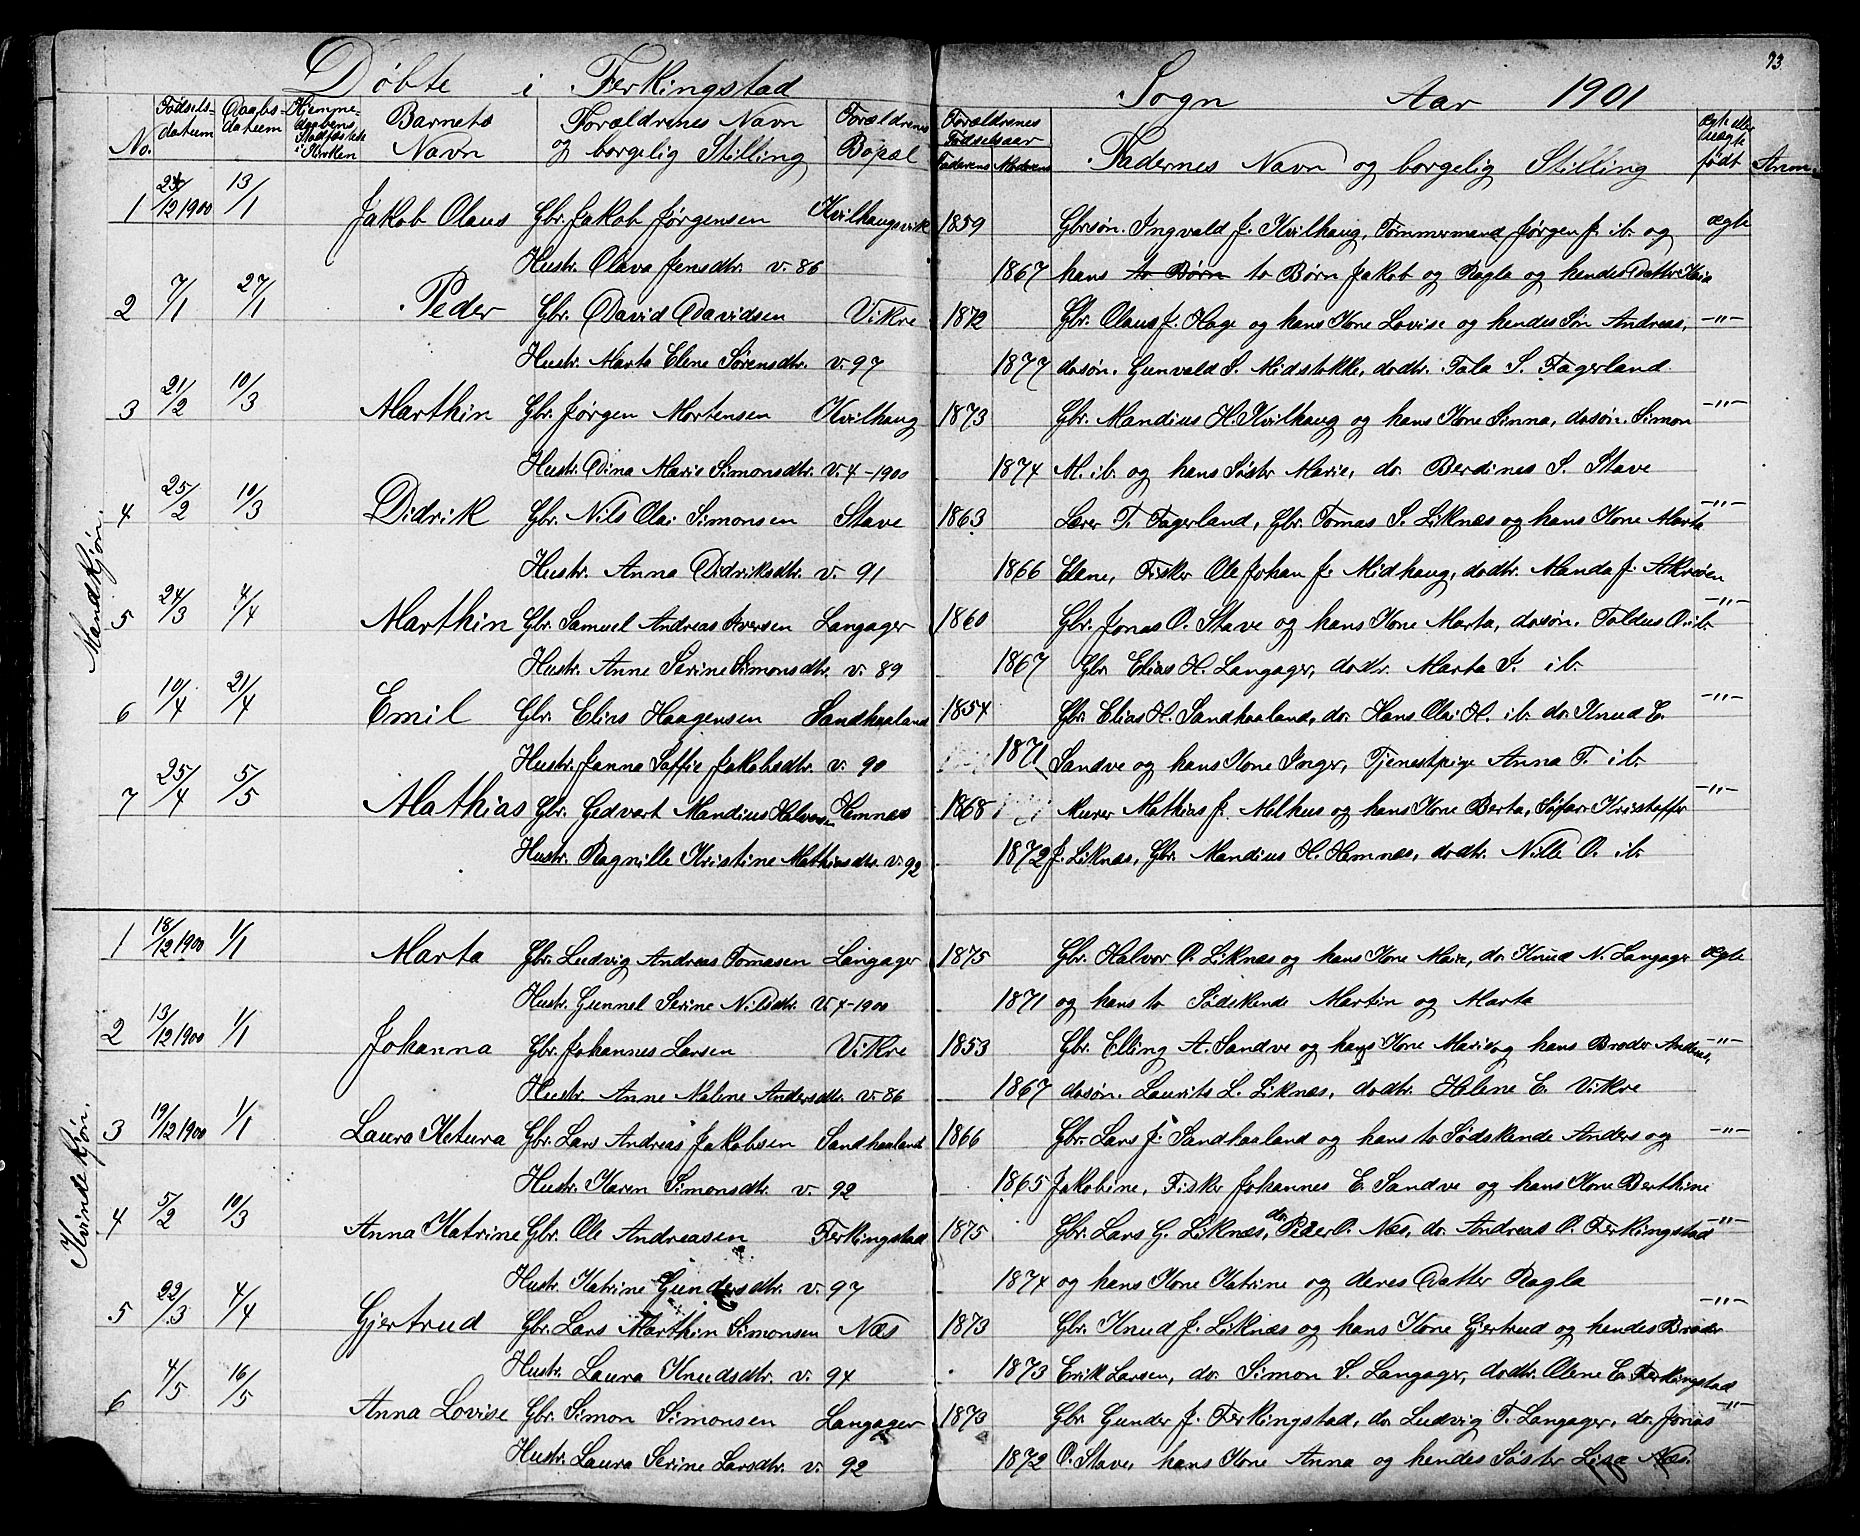 73
Døbte i Ferkingstad Sogn Aar 1901
No. Fødsels-datum Daabs-datum Hjemme-daabens Stadfæstelse i Kirken Barnets Navn Forældrenes Navn og borgelig Stilling Forældrenes Bopæl Forældrenes Fødselsaar Faderens Moderens Fadernes Navn og borgelig Stilling Ægte eller uægte født Anm.
Mandkjøn.
1 24/12 1900 13/1 Jakob Olaus Gbr. Jakob Jørgensen Kvilhaugsvik 1859 Gbrsøn. Ingvald J. Kvilhaug, Tømmermand Jørgen J. ib. og ægte
Hustr. Olava Jensdtr. v. 86 1867 hans to Børn to Børn Jakob og Ragla og hendes Datter
2 7/1 27/1 Peder Gbr. David Davidsen Vikre 1872 Gbr. Olaus J. Hage og hans Kone Lovise og hendes Søn Andreas, -"-
Hustr. Marta Elene Sørensdtr. v. 97 1877 dosøn. Gunvald S. Midstokke, dodtr. Tala S. Fagerland.
3 21/2 10/3 Marthin Gbr. Jørgen Mortensen Kvilhaug 1873 Gbr. Mandius H. Kvilhaug og hans Kone Sinna, dosøn. Simon -"-
Hustr. Dina Marie Simonsdtr. v. 4-1900 1874 M. ib. og hans Søster Marie, do. Berdines S. Stave
4 25/2 10/3 Didrik Gbr. Nils Olai Simonsen Stave 1863 Lærer T. Fagerland, Gbr. Tomas S. Liknæs og hans Kone Marta -"-
Hustr. Anna Didriksdtr. v. 91 1866 Elene, Fisker Ole Johan J. Midhaug, dodtr. Manda J. Akreøen
5 24/3 4/4 Marthin Gbr. Samuel Andreas Iversen Langager 1860 Gbr. Jonas O. Stave og hans Kone Marta, dosøn. Toldus O. ib. -"-
Hustr. Anne Serine Simonsdtr. v. 89 1867 Gbr. Elias H. Langager, dodtr. Marta S. ib.
6 10/4 21/4 Emil Gbr. Elias Haagensen Sandhaaland 1854 Gbr. Elias H. Sandhaaland, do. Hans Olai H. ib. do. Knud E. -"-
Hustr. Janna Soffie Jakobsdtr. v. 90 1871 Sandve og hans Kone Inger, Tjenestpige Anna T. ib.
7 25/4 5/5 Mathias Gbr. Gedvart Mandius Halvorsen Hemnes 1868 Murer Mathias J. Melhus og hans Kone Berta, Søfar. Kristoffer -"-
Hustr. Ragnille Kristine Mathiasdtr. v. 92 1872 J. Liknæs, Gbr. Mandius H. Hemnæs, dodtr. Nille O. ib.
Kvindekjøn.
1 18/12 1900 1/1 Marta Gbr. Ludvig Andreas Tomasen Langager 1875 Gbr. Halvor O. Liknæs og hans Kone Marie, do. Knud N. Langager ægte
Hustr. Gunnel Serine Nilsdtr. v. 4-1900 1871 og hans to Sødskende Martin og Marta
2 13/12 1900 1/1 Johanna Gbr. Johannes Larsen Vikre 1853 Gbr. Elling A. Sandve og hans Kone Marie og hans Broder Andreas, -"-
Hustr. Anne Malene Andersdtr. v. 86 1867 dosøn. Laurits L. Liknæs, dodtr. Helene E. Vikre
3 19/12 1900 1/1 Laura Ketura Gbr. Lars Andreas Jakobsen Sandhaaland 1866 Gbr. Lars J. Sandhaaland og hans to Sødskende Anders og -"-
Hustr. Karen Simonsdtr. v. 92 1865 Jakobine, Fisker Johannes E. Sandve og hans Kone Berthine
4 5/2 10/3 Anna Katrine Gbr. Ole Andreasen Ferkingstad 1875 Gbr. Lars G. Liknæs, do. Peder O. Næs, do. Andreas O. Ferkingstad -"-
Hustr. Katrine Gundersdtr. v. 97 1874 og hans Kone Katrine og deres Datter Ragla
5 22/3 4/4 Gjertrud Gbr. Lars Marthin Simonsen Næs 1873 Gbr. Knud J. Liknæs og hans Kone Gjertrud og hendes Broder -"-
Hustr. Laura Knudsdtr. v. 94 1873 Erik Larsen, do. Simon S. Langager, dodtr. Olene E. Ferkingstad
6 4/5 16/5 Anna Lovise Gbr. Simon Simonsen Langager 1873 Gbr. Gunder J. Ferkingstad, do. Ludvig T. Langager, do. Jonas -"-
Hustr. Laura Serine Larsdtr. v. 92 1872 O. Stave, hans Kone Anna og hendes Søster Lisa Næs.